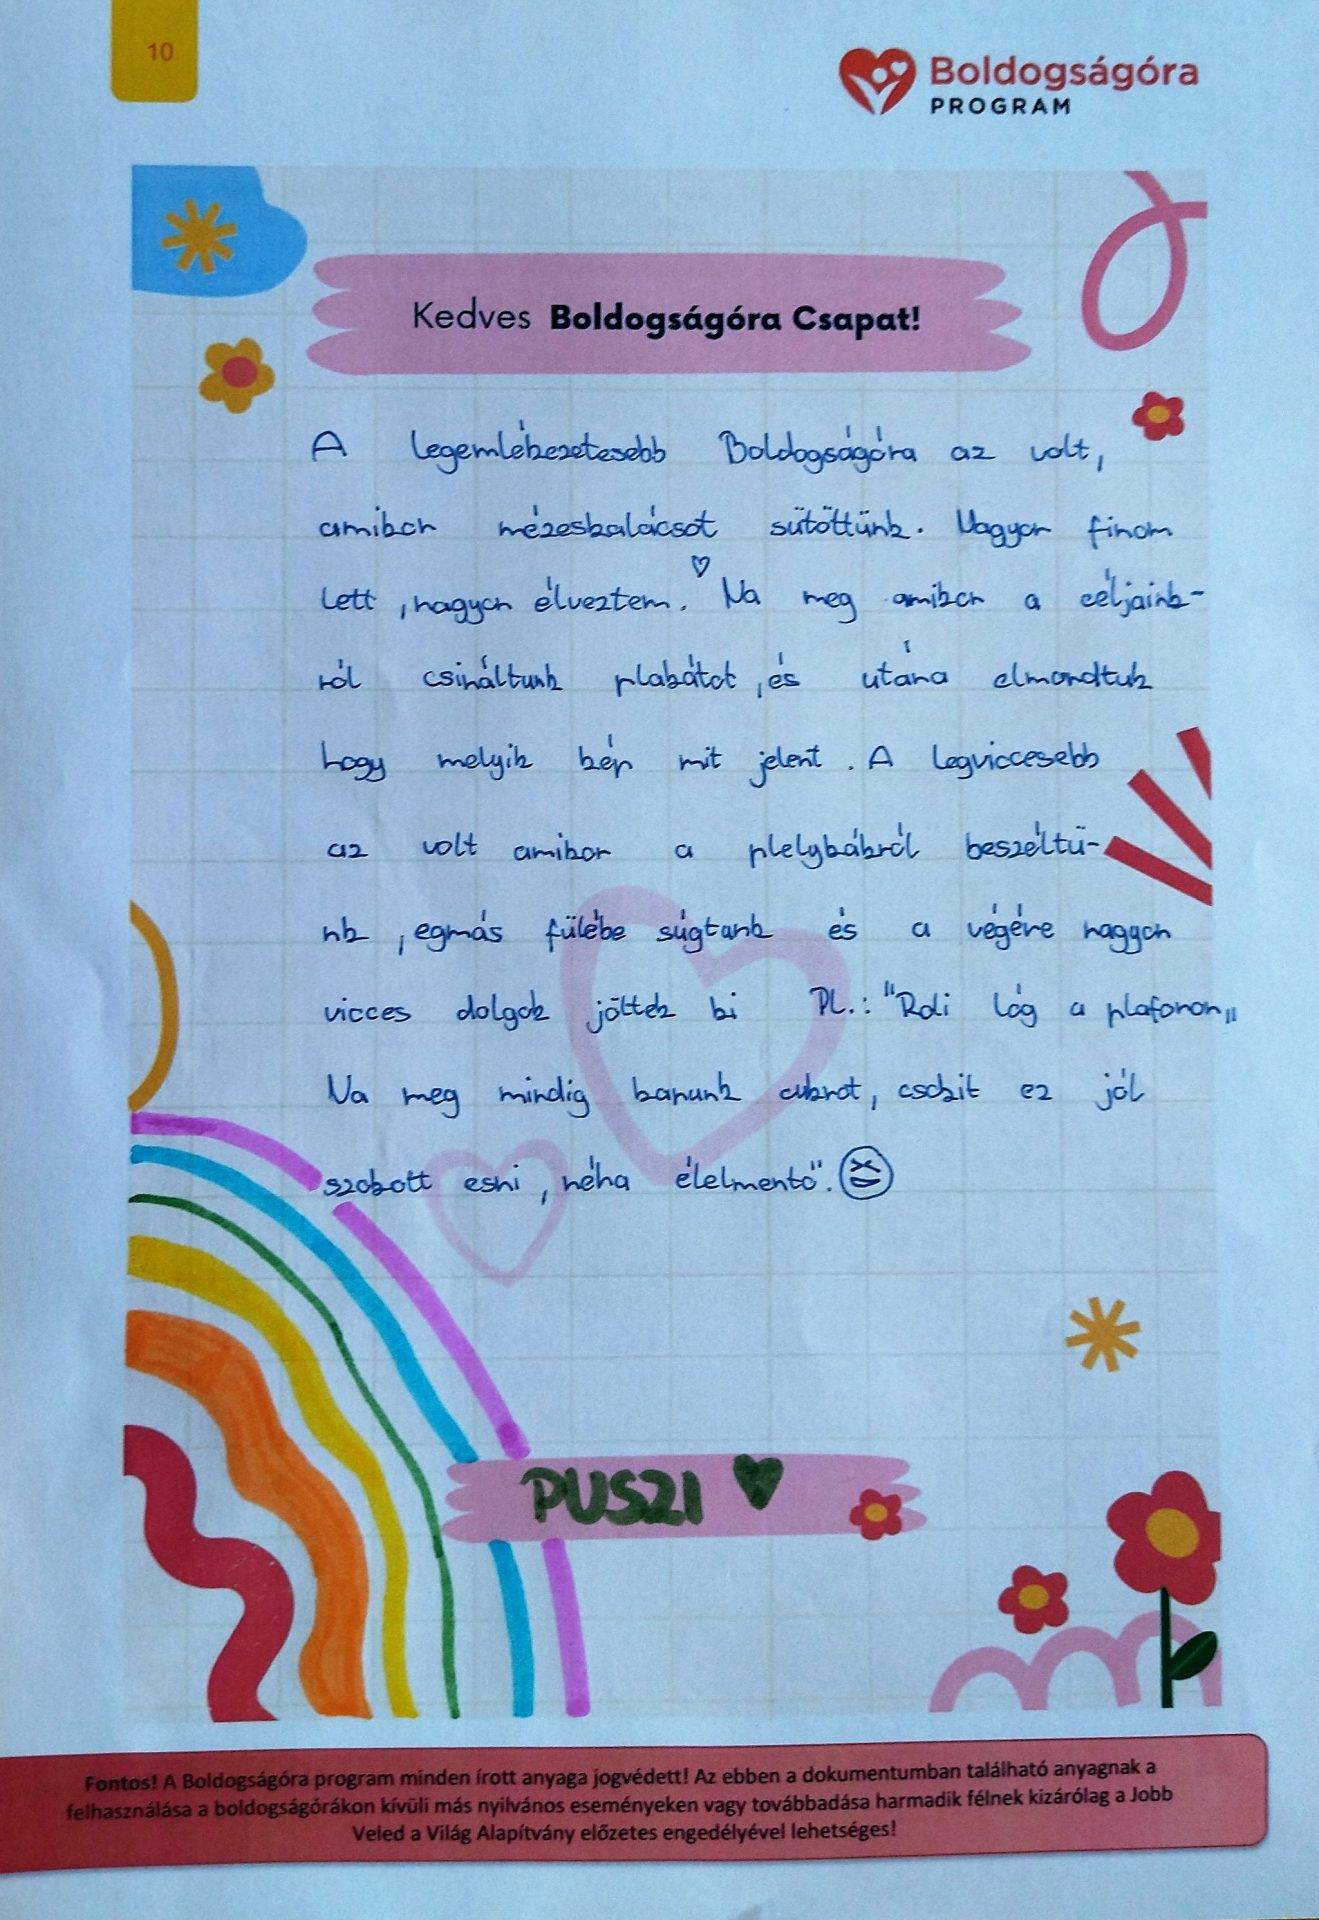 10
Boldogságóra
PROGRAM
Kedves Boldogságóra Csapat!
A legemlékezetesebb Boldogságóra az volt,
amikor mézeskalácsot sütöttünk. Nagyon finom
lett, nagyon élveztem. ♡ Na meg amikor a céljaink-
ról csináltunk plakátot, és utána elmondtuk
hogy melyik kép mit jelent. A legviccesebb
az volt amikor a plelykákról beszéltü-
nk, egmás fülébe súgtank és a végére naggon
vicces dolgok jöttek ki Pl.: "Roli lóg a plafonon„
Na meg mindig kapunk cukrot, csokit ez jól
szokott esni, néha élelmentő".
PUSZI ♥
Fontos! A Boldogságóra program minden írott anyaga jogvédett! Az ebben a dokumentumban található anyagnak a
felhasználása a boldogságórákon kívüli más nyilvános eseményeken vagy továbbadása harmadik félnek kizárólag a Jobb
Veled a Világ Alapítvány előzetes engedélyével lehetséges!